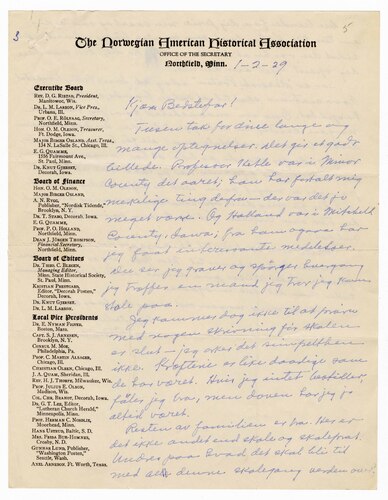 3
5
The Norwegian American Historical Association
OFFICE OF THE SECRETARY
Northfield, Minn.
1-2-29
Executive Board
REV. D. G. RISTAD, President,
Manitowoc, Wis.
DR. L. M. LARSON, Vice Pres.,
Urbana, Ill.
PROF. O. E. RÖLVAAG, Secretary,
Northfield, Minn.
HON. O. M. OLESON, Treasurer,
Ft. Dodge, Iowa.
MAJOR BIRGER OSLAND, Asst. Treas.,
134 N. LaSalle St., Chicago, Ill.
E. G. QUAMME,
St. Paul, Minn.
DR. KNUT GJERSET,
Decorah, Iowa.
Board of Finance
HON. O. M. OLESON,
MAJOR BIRGER OSLAND,
A. N. RYGG,
Publisher, "Nordisk Tidende,"
Brooklyn, N. Y.
DR. T. STABO, Decorah, Iowa.
E. G. QUAMME,
PROF. P. O. HOLLAND,
Northfield, Minn.
DEAN J. JÖRGEN THOMPSON,
Financial Secretary,
Northfield, Minn.
Board of Editors
DR. THEO. C. BLEGEN,
Managing Editor,
Minn. State Historical Society,
St. Paul, Minn.
KRISTIAN PRESTGARD,
Editor, "Decorah Posten,"
Decorah, Iowa.
DR. KNUT GJERSET,
DR. L. M. LARSON,
Local Vice Presidents
Boston, Mass.
CAPT. S. J. ARNESEN,
Brooklyn, N. Y.
CONSUL M. MOE,
Philadelphia, Pa.
Chicago, Ill.
CHRISTIAN OLSEN, Chicago, Ill.
J. A. QUAM, Sheridan, Ill.
REV. H. J. THORPE, Milwaukee, Wis.
PROF. JULIUS E. OLSON,
Madison, Wis.
Decorah, Iowa.
DR. G. T. LEE, Editor
"Lutheran Church Herald,"
Minneapolis, Minn.
Moorhead, Minn.
HANS USTRUD, Baltic, S. D.
Crosby, N. D.
GUNNAR LUND, Publisher,
"Washington Posten,"
Seattle, Wash.
AXEL ARNESON, Ft. Worth, Texas.
Kjære Bedstefar!
Tusen tak for dine lange og
mange optegnelser. det gir et godt
billede. Professor var i
County det året; han har fortalt mig
ting derfra – der var det
meget værre. Og Holland var i Mitchell
County, Iowa; fra ham også har
jeg fått interessante meddelelser.
Du ser jeg graver og spörger hvergang
jeg træffer en mand jeg tror jeg kan
stole paa.
Jeg kommer dog ikke til at pröve
med nogen skrivning för skolen
er slut – jeg orker det simpelthen
ikke. er like daarlige som
de har været. Hvis jeg intet bestiller,
föler jeg bra, men doven har jeg jo
altid været.
Resten av familien er bra. Her er
det ikke andet end skole og skoleprat.
Undres paa hvad det skal bli til
med denne skolegang verden over!